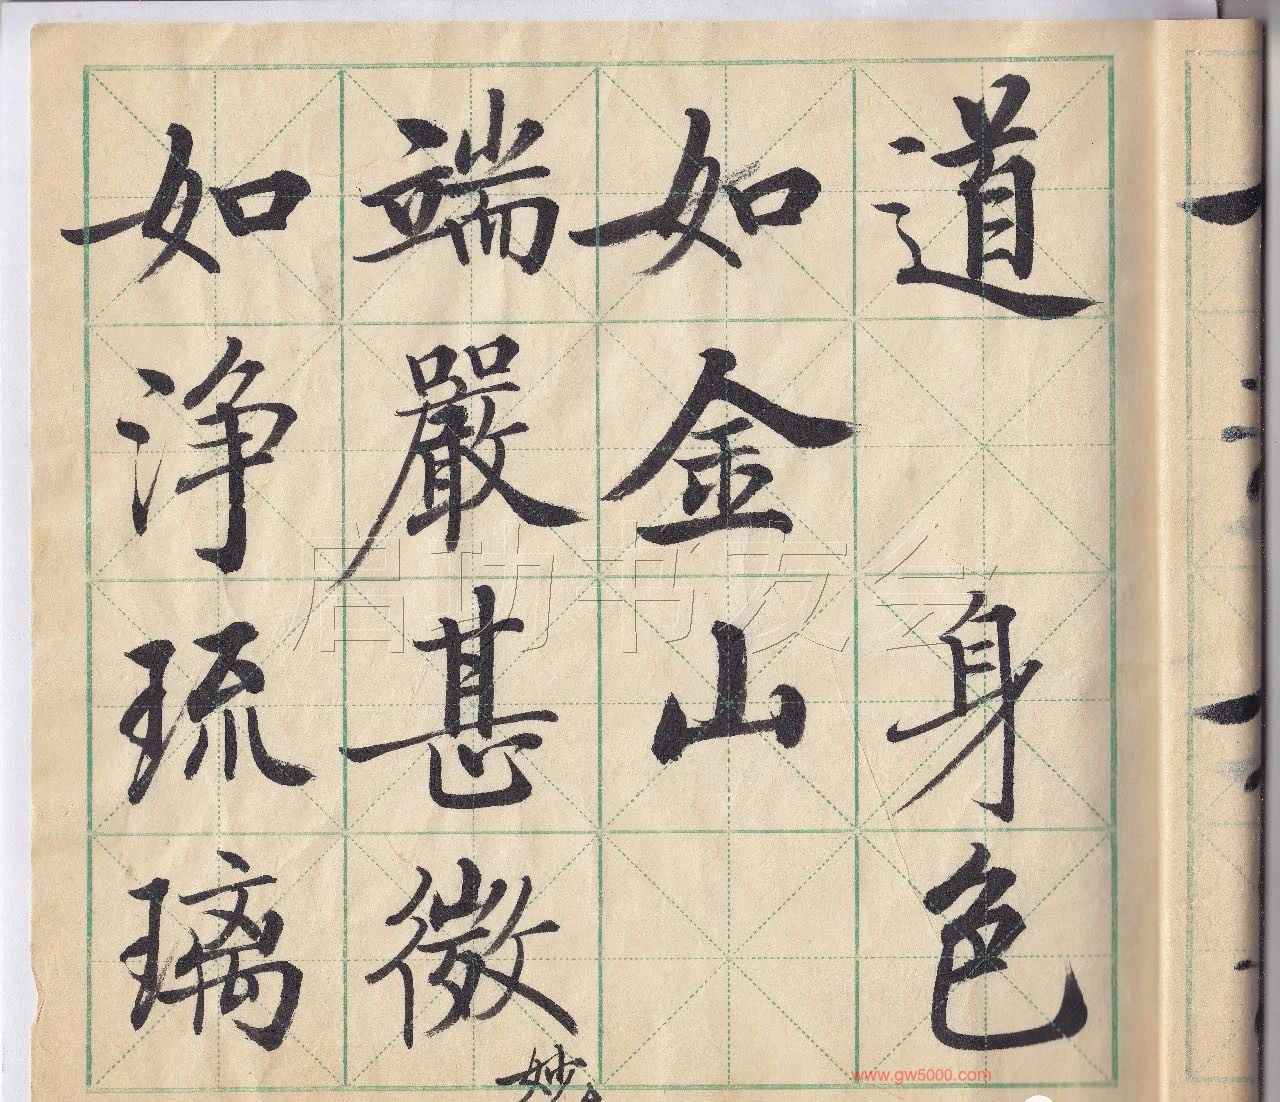 道 身色
如金山
端嚴甚微妙
如淨琉璃
启功书友会
www.gw5000.com